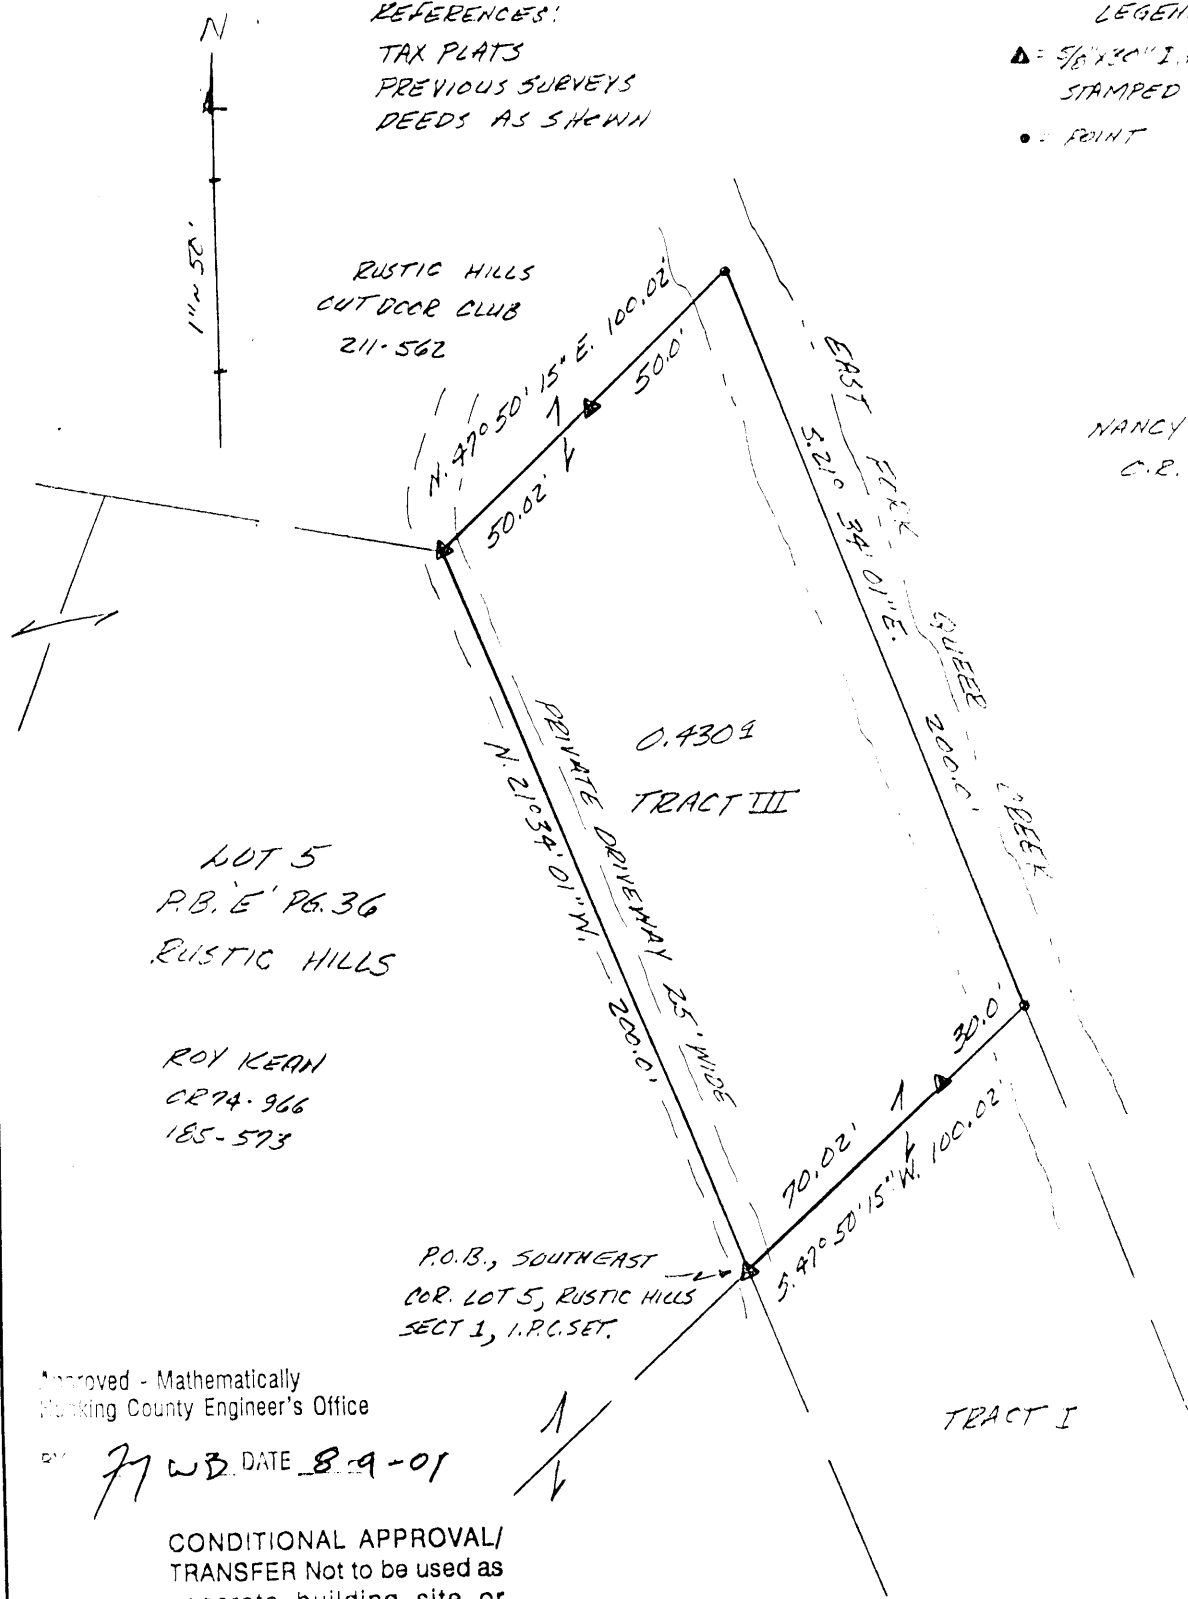 N
REFERENCES:
TAX PLATS
PREVIOUS SURVEYS
DEEDS AS SHOWN
▲ = 5/8"X30" I.
STAMPED
• = POINT
1" = 50'
RUSTIC HILLS
OUTDOOR CLUB
211-562
N. 47° 50' 15" E. 100.02'
50.0'
50.02'
EAST FORK QUEER CREEK
S. 21° 34' 01" E. 200.0'
NANCY
C.R.
PRIVATE DRIVEWAY 25' WIDE
N. 21° 34' 01" W. 200.0'
0.430
TRACT III
LOT 5
P.B. 'E' PG. 36
RUSTIC HILLS
ROY KEAN
CR74-966
185-573
30.0'
70.02'
S. 47° 50' 15" W. 100.02'
P.O.B., SOUTHEAST
COR. LOT 5, RUSTIC HILLS
SECT 1, I.P.C. SET.
TRACT I
Approved - Mathematically
Hocking County Engineer's Office
BY WB DATE 8-9-01
CONDITIONAL APPROVAL/
TRANSFER Not to be used as
separate building site or